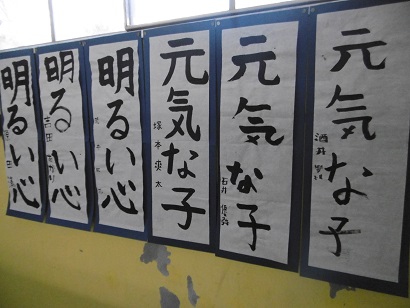 明るい心
明るい心
吉田
明るい心
元気な子
塚本爽太
元気な子
石井
元気な子
酒井